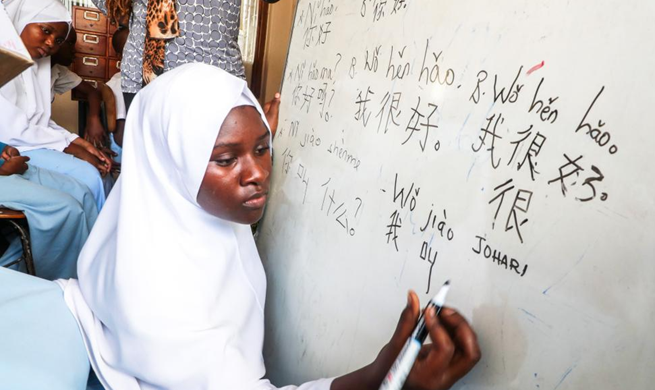 Nǐ hǎo.
你好
你
Nǐ hǎo ma?
你好吗?
Nǐ jiào shénme
你叫什么?
B. Wǒ hěn hǎo.
我很好。
B. Wǒ hěn hǎo。
我很好。
很
Wǒ jiào JOHARI
我叫